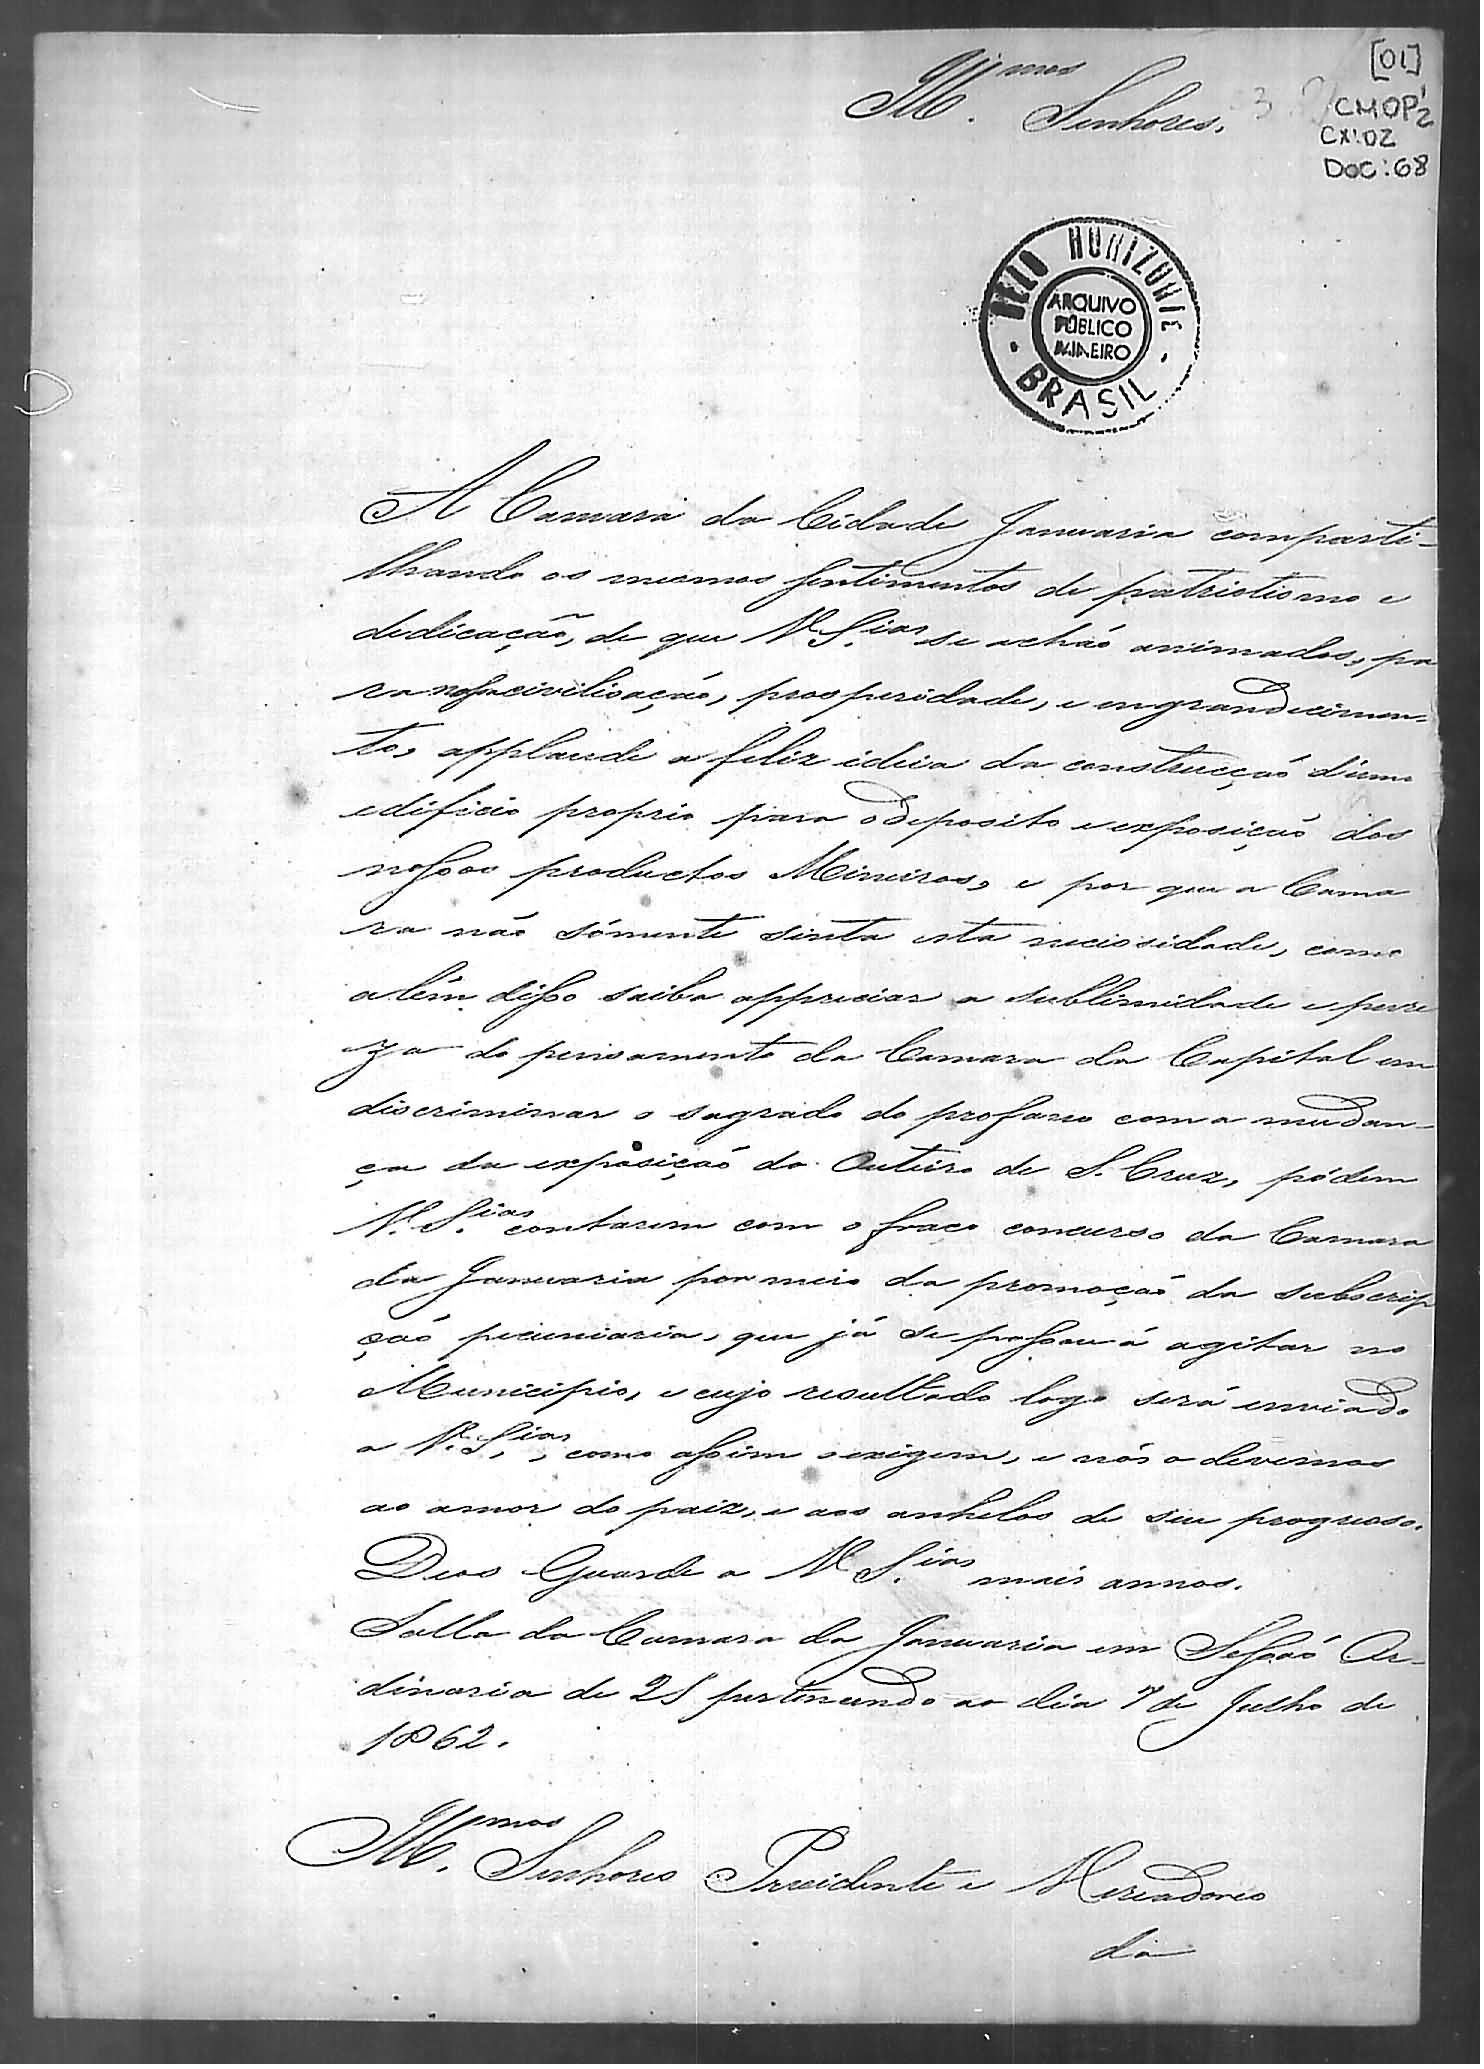 [01]
CMOP 1/2
CX: 02
DOC: 68
Ill.mos Senhores.
BELO HORIZONTE
ARQUIVO
PÚBLICO
MINEIRO
BRASIL
A Camara da Cidade Januaria comparti-
lhando os mesmos sentimentos de patriotismo e
dedicação, de que V. S.ias se achão animados, pa
ra nossa civilisação, prosperidade, e engrandecimen-
to, applaude a feliz ideia da construcção d'um
edificio proprio para o deposito e exposição dos
nossos productos Mineiros, e por que a Cama
ra não sómente sinta esta necissidade, como
alêm disso saiba appreciar a sublimidade e pure
za do pensamento da Camara da Capital em
discriminar o sagrado do profano com a mudan-
ça da exposição do Outeiro de S. Cruz, pódem
V. S.ias contarem com o fraco concurso da Camara
da Januaria por meio da promoção da subscrip
ção pecuniaria, que já se passou á agitar no
Municipio, e cujo resultado logo será enviado
a V. S.ias, como assim o exigem, e nós o devemos
ao amor do paiz, e aos anhelos de seu progresso.
Deos Guarde a V. S.ias mais annos.
Salla da Camara da Januaria em Sessaõ Or-
dinaria de 25 pertencendo ao dia 7 de Julho de
1862.
Ill.mos Senhores Presidente e Vereadores
da